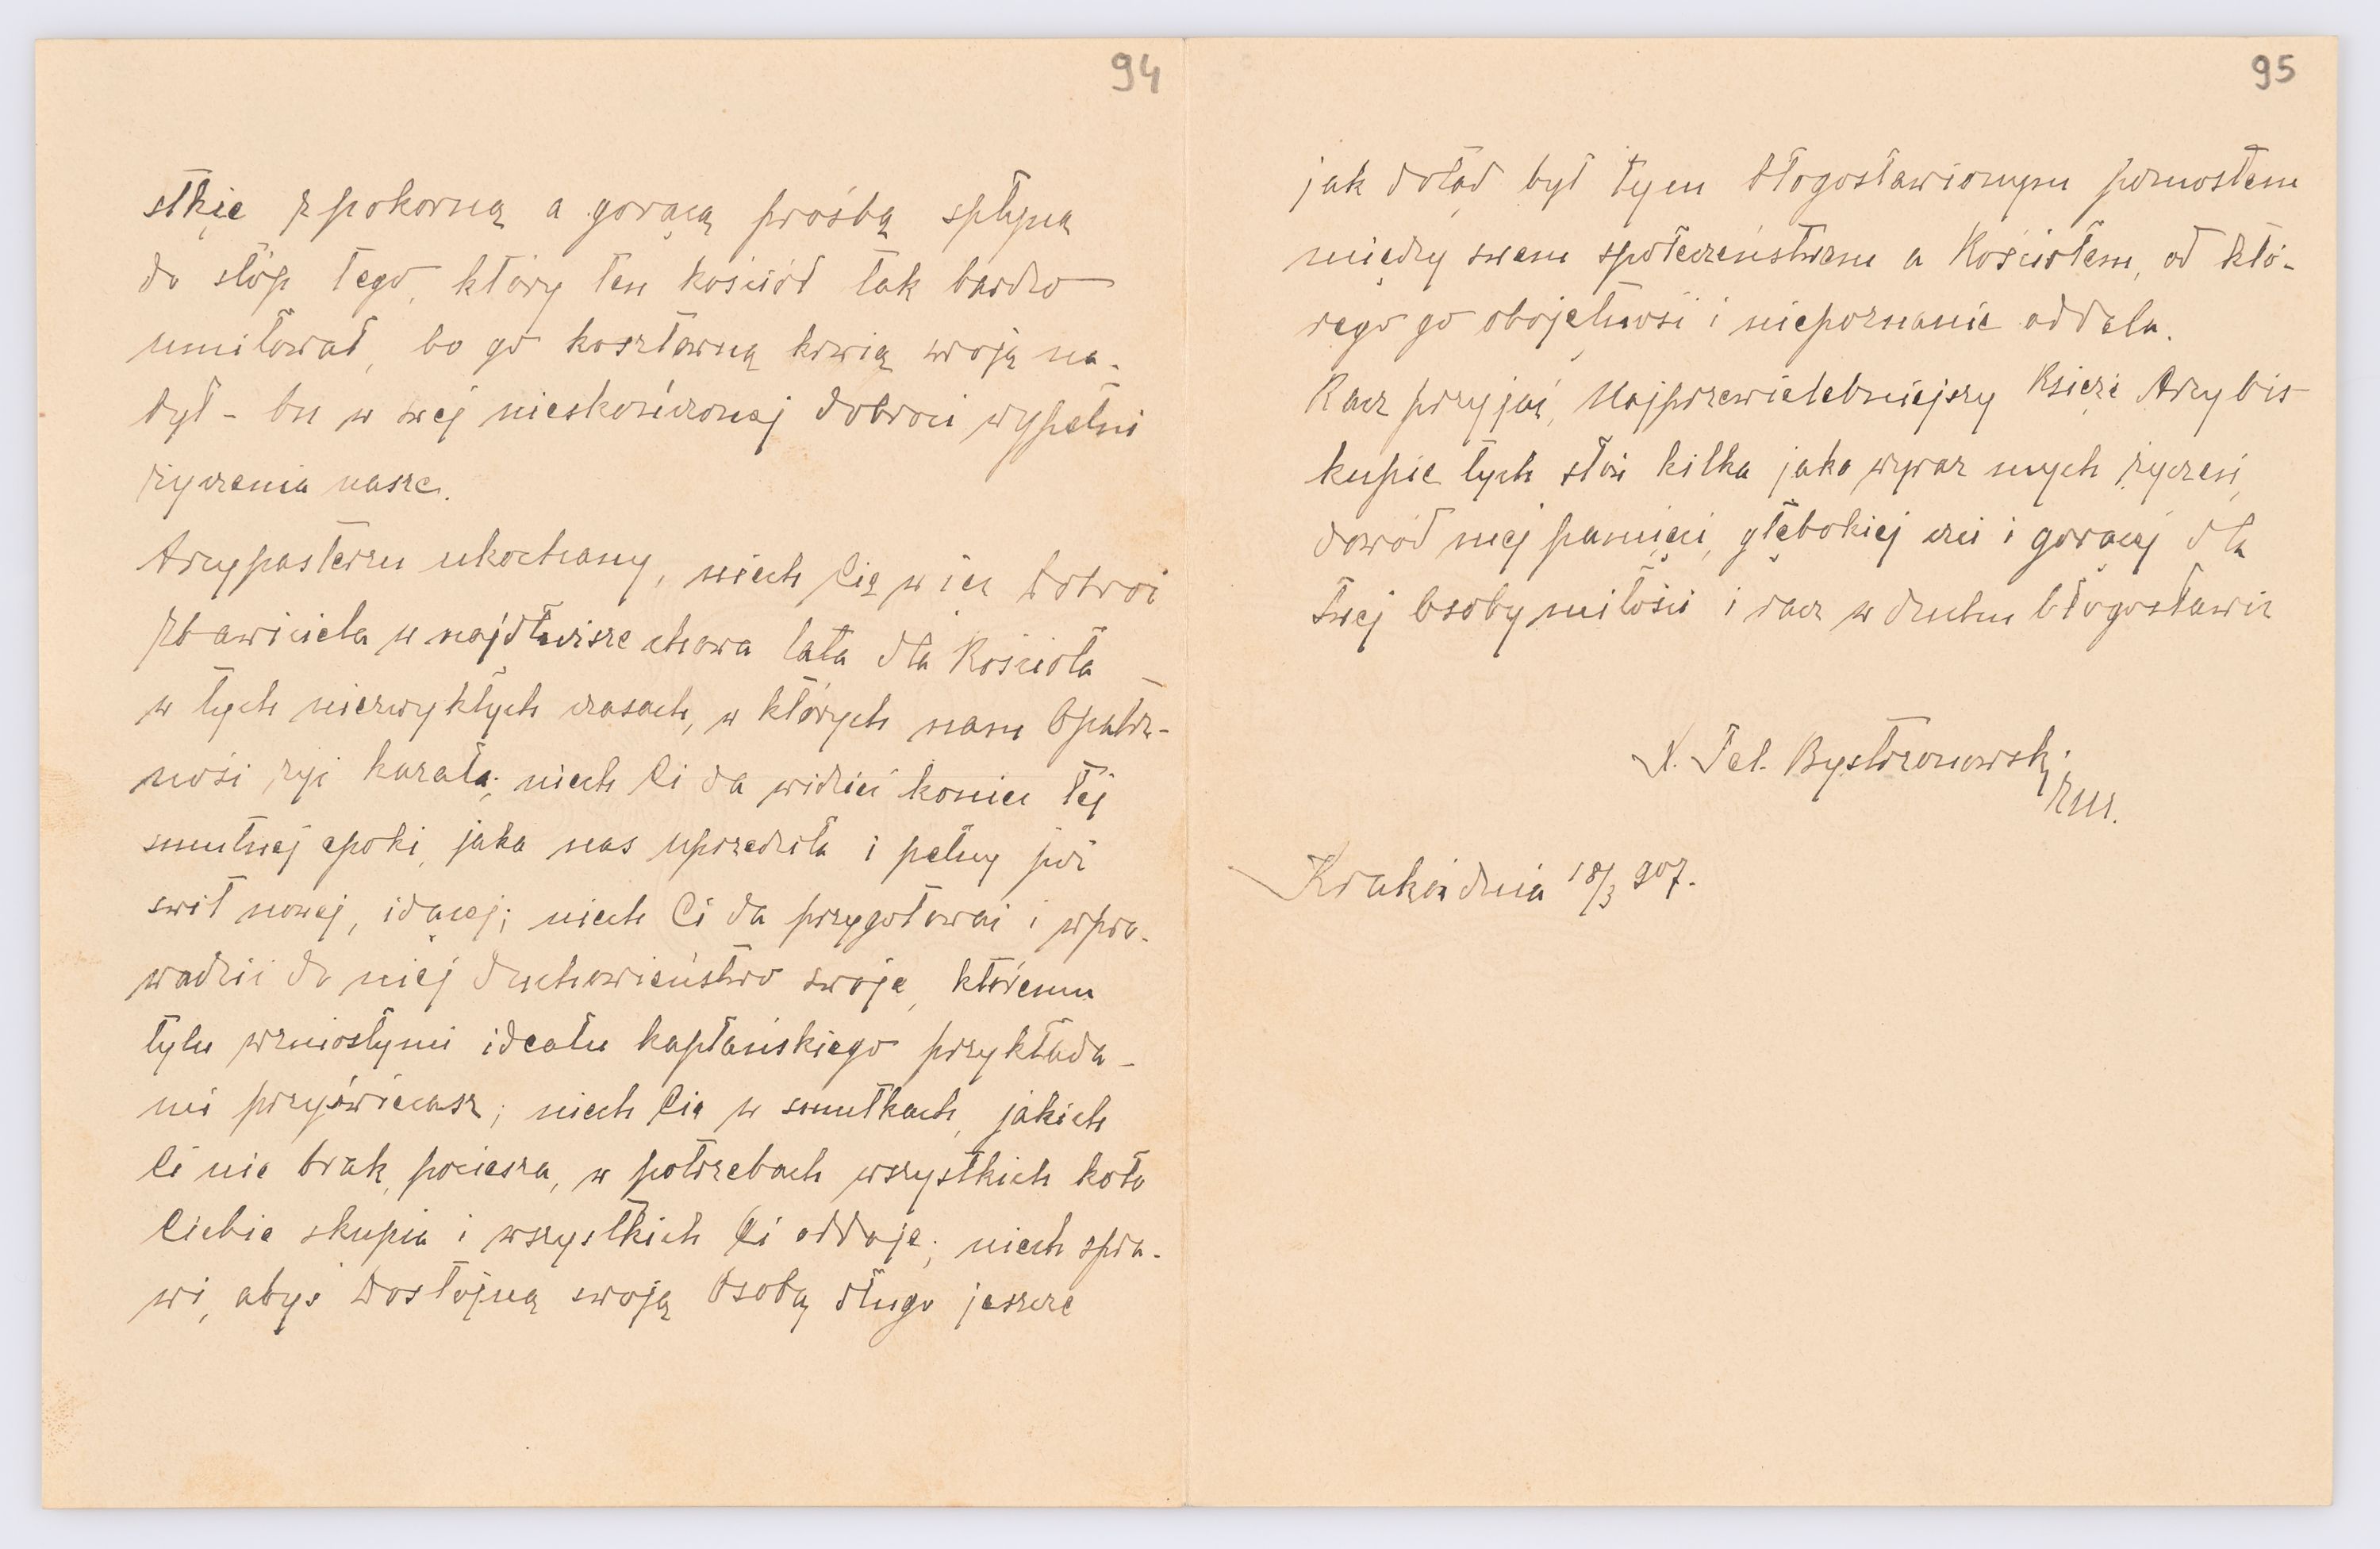 94
stkie z pokorną a gorącą prośbą spłyną
do stóp tego, który ten kościół tak bardzo
umiłował, bo go kosztowną krwią swoją na-
był - On w swej nieskończonej dobroci wypełni
życzenia nasze.
Arcypasterzu ukochany, niech Cię więc dobroć
Zbawiciela w najdłuższe chowa lata dla Kościoła
w tych niezwykłych czasach, w których nam Opatrz-
ność żyć kazała; niech Ci da widzieć koniec tej
smutnej epoki, jaka nas uprzedziła i pełny już
świt nowej, idącej; niech Ci da przygotować i wpro-
wadzić do niej duchowieństwo swoje, któremu
tylu wzniosłymi ideału kapłańskiego przykłada-
mi przyświecasz; niech Cię w smutkach, jakich
Ci nie brak, pociesza, w potrzebach wszystkich koło
Ciebie skupia i wszystkich Ci oddaje; niech spra-
wi, abyś Dostojną swoją Osobą długo jeszcze
95
jak dotąd był tym błogosławionym pomostem
między swem społeczeństwem a Kościołem, od któ-
rego go obojętność i niepoznanie oddala.
Racz przyjąć, Najprzewielebniejszy Księże Arcybis-
kupie tych słów kilka jako wyraz mych życzeń,
dowód mej pamięci, głębokiej czci i gorącej dla
Twej Osoby miłości i racz w duchu błogosławić
X. Fel. Bystrzonowski
Kraków dnia 18/3 907.